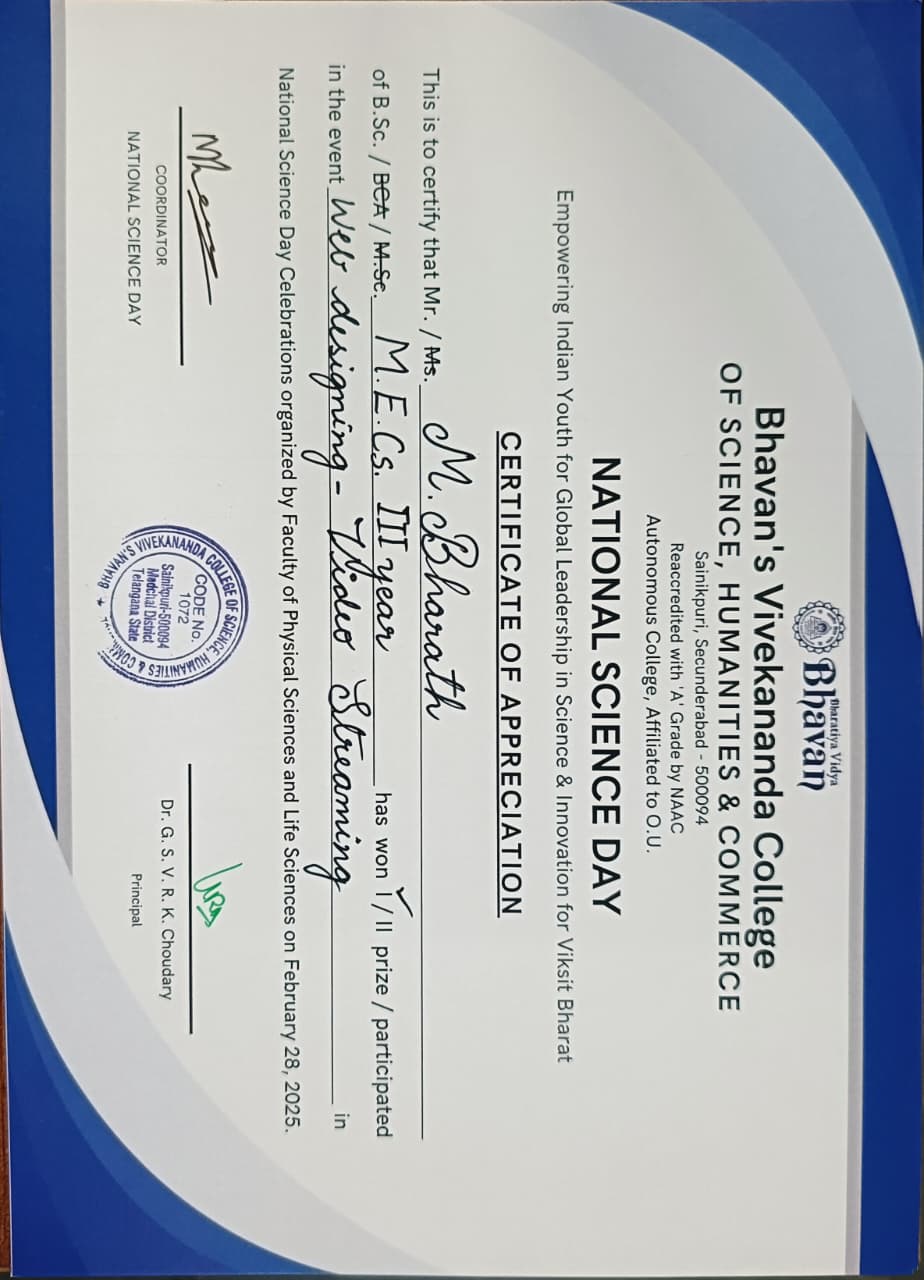 Bharatiya Vidya
Bhavan
Bhavan's Vivekananda College
OF SCIENCE, HUMANITIES & COMMERCE
Sainikpuri, Secunderabad - 500094
Reaccredited with 'A' Grade by NAAC
Autonomous College, Affiliated to O.U.
NATIONAL SCIENCE DAY
Empowering Indian Youth for Global Leadership in Science & Innovation for Viksit Bharat
CERTIFICATE OF APPRECIATION
This is to certify that Mr. / Ms. M. Bharath
of B.Sc. / BCA / M.Sc. M.E.Cs. III year has won I / II prize / participated
in the event Web designing - Video Streaming in
National Science Day Celebrations organized by Faculty of Physical Sciences and Life Sciences on February 28, 2025.
COORDINATOR
NATIONAL SCIENCE DAY
BHAVAN'S VIVEKANANDA COLLEGE OF SCIENCE, HUMANITIES &
CODE No.
1072
Sainikpuri-500094
Medchal District
Telangana State
Dr. G. S. V. R. K. Choudary
Principal